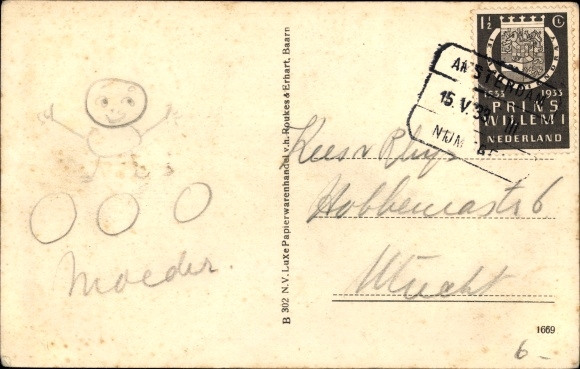 Moeder.
B 302 N.V. LuXe Papierwarenhandel v.h. Roukes & Erhart, Baarn
1½ Ct
1533 1933
PRINS
WILLEM I
NEDERLAND
AMSTERDAM
15.V.33 III
NIJM
Kees v
Hobbemastr 6
Utrecht
1669
6-